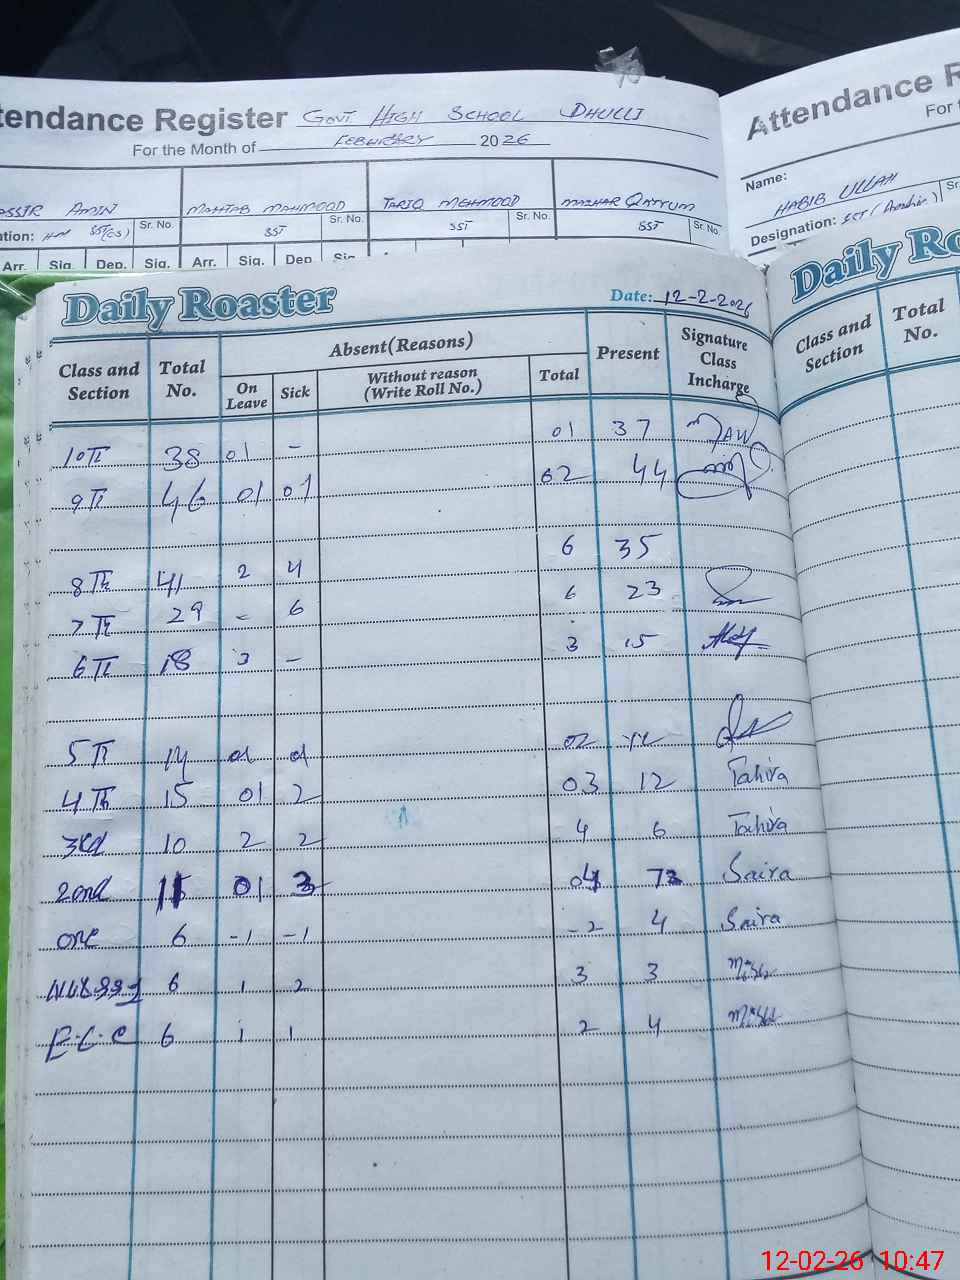 tendance Register GOVT HIGH SCHOOL DHULLI
For the Month of FEBRUARY 2026
ASSIR AMIN MAHTAB MAHMOOD TARIQ MEHMOOD MAZHAR QAYYUM
ation: SST(CS) Sr. No. SST Sr. No. SST Sr. No. SST Sr. No.
Arr. Sig. Dep. Sig. Arr. Sig. Dep Sig
Attendance R
For the
Name: HABIB ULLAH
Designation: Sr.
Daily Roaster Date: 12-2-2026
Class and Section Total No. Absent(Reasons) Present Signature Class Incharge
On Leave Sick Without reason (Write Roll No.) Total
10th 38 01 - 01 37
9th 46 01 01 02 44
8th 41 2 4 6 35
7th 29 - 6 6 23
6th 18 3 - 3 15
5th 14 01 01 02
4th 15 01 2 03 12 Tahira
3rd 10 2 2 4 6 Tahira
2nd 11 01 3 04 7 Saira
one 6 -1 -1 -2 4 Saira
6 1 2 3 3
E.C.C 6 1 1 2 4
Daily Ro
Class and Section Total No.
12-02-26 10:47